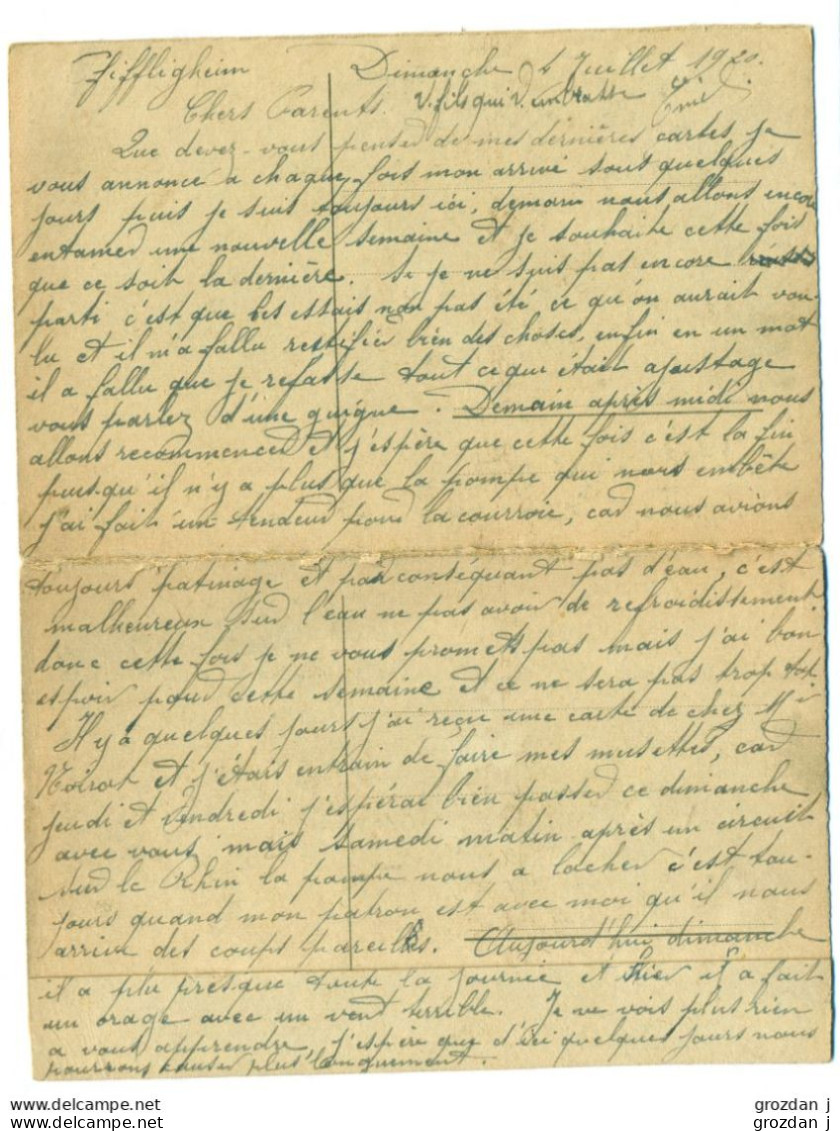 Fiffligheim Dimanche 4 Juillet 1920.
Chers Parents. V. fils qui v. embrasse
Que devez-vous penser de mes dernières cartes, je
vous annonce a chaque fois mon arrivé sous quelques
jours puis je suis toujours ici, demain nous allons encore
entamer une nouvelle semaine et je souhaite cette fois
que ce soit la dernière. Se je ne suis pas encore
parti c'est que les essais non pas été ce qu'on aurait vou-
lu et il m'a fallu restifier bien des choses, enfin en un mot
il a fallu que je refasse tout ce que était ajustage
vous parlez d'une guigne. Demain après midi nous
allons recommencer et j'espère que cette fois c'est la fin
puisqu'il n'y a plus que la pompe qui nous embête
j'ai fait un tendeur pour la courroie, car nous avions
toujours patinage et par conséquant pas d'eau, c'est
malheureux sur l'eau ne pas avoir de refroidissement
donc cette fois je ne vous promets pas mais j'ai bon
espoir pour cette semaine et ce ne sera pas trop tot
Il y a quelques jours j'ai reçu une carte de chez Mr
Noirot et j'étais entrain de faire mes musettes, car
jeudi et Vendredi j'espérai bien passer ce dimanche
avec vous, mais samedi matin après un circuit
sur le Rhin la pompe nous a lacher c'est tou-
jours quand mon patron est avec moi qu'il nous
arrive des coups pareils. Aujourd'hui dimanche
il a plu presque toute la journée et hier il a fait
un orage avec un vent terrible. Je ne vois plus rien
a vous apprendre, j'espère que d'ici quelques jours nous
pourrons causer plus longuement.
grozdan j
grozdan j